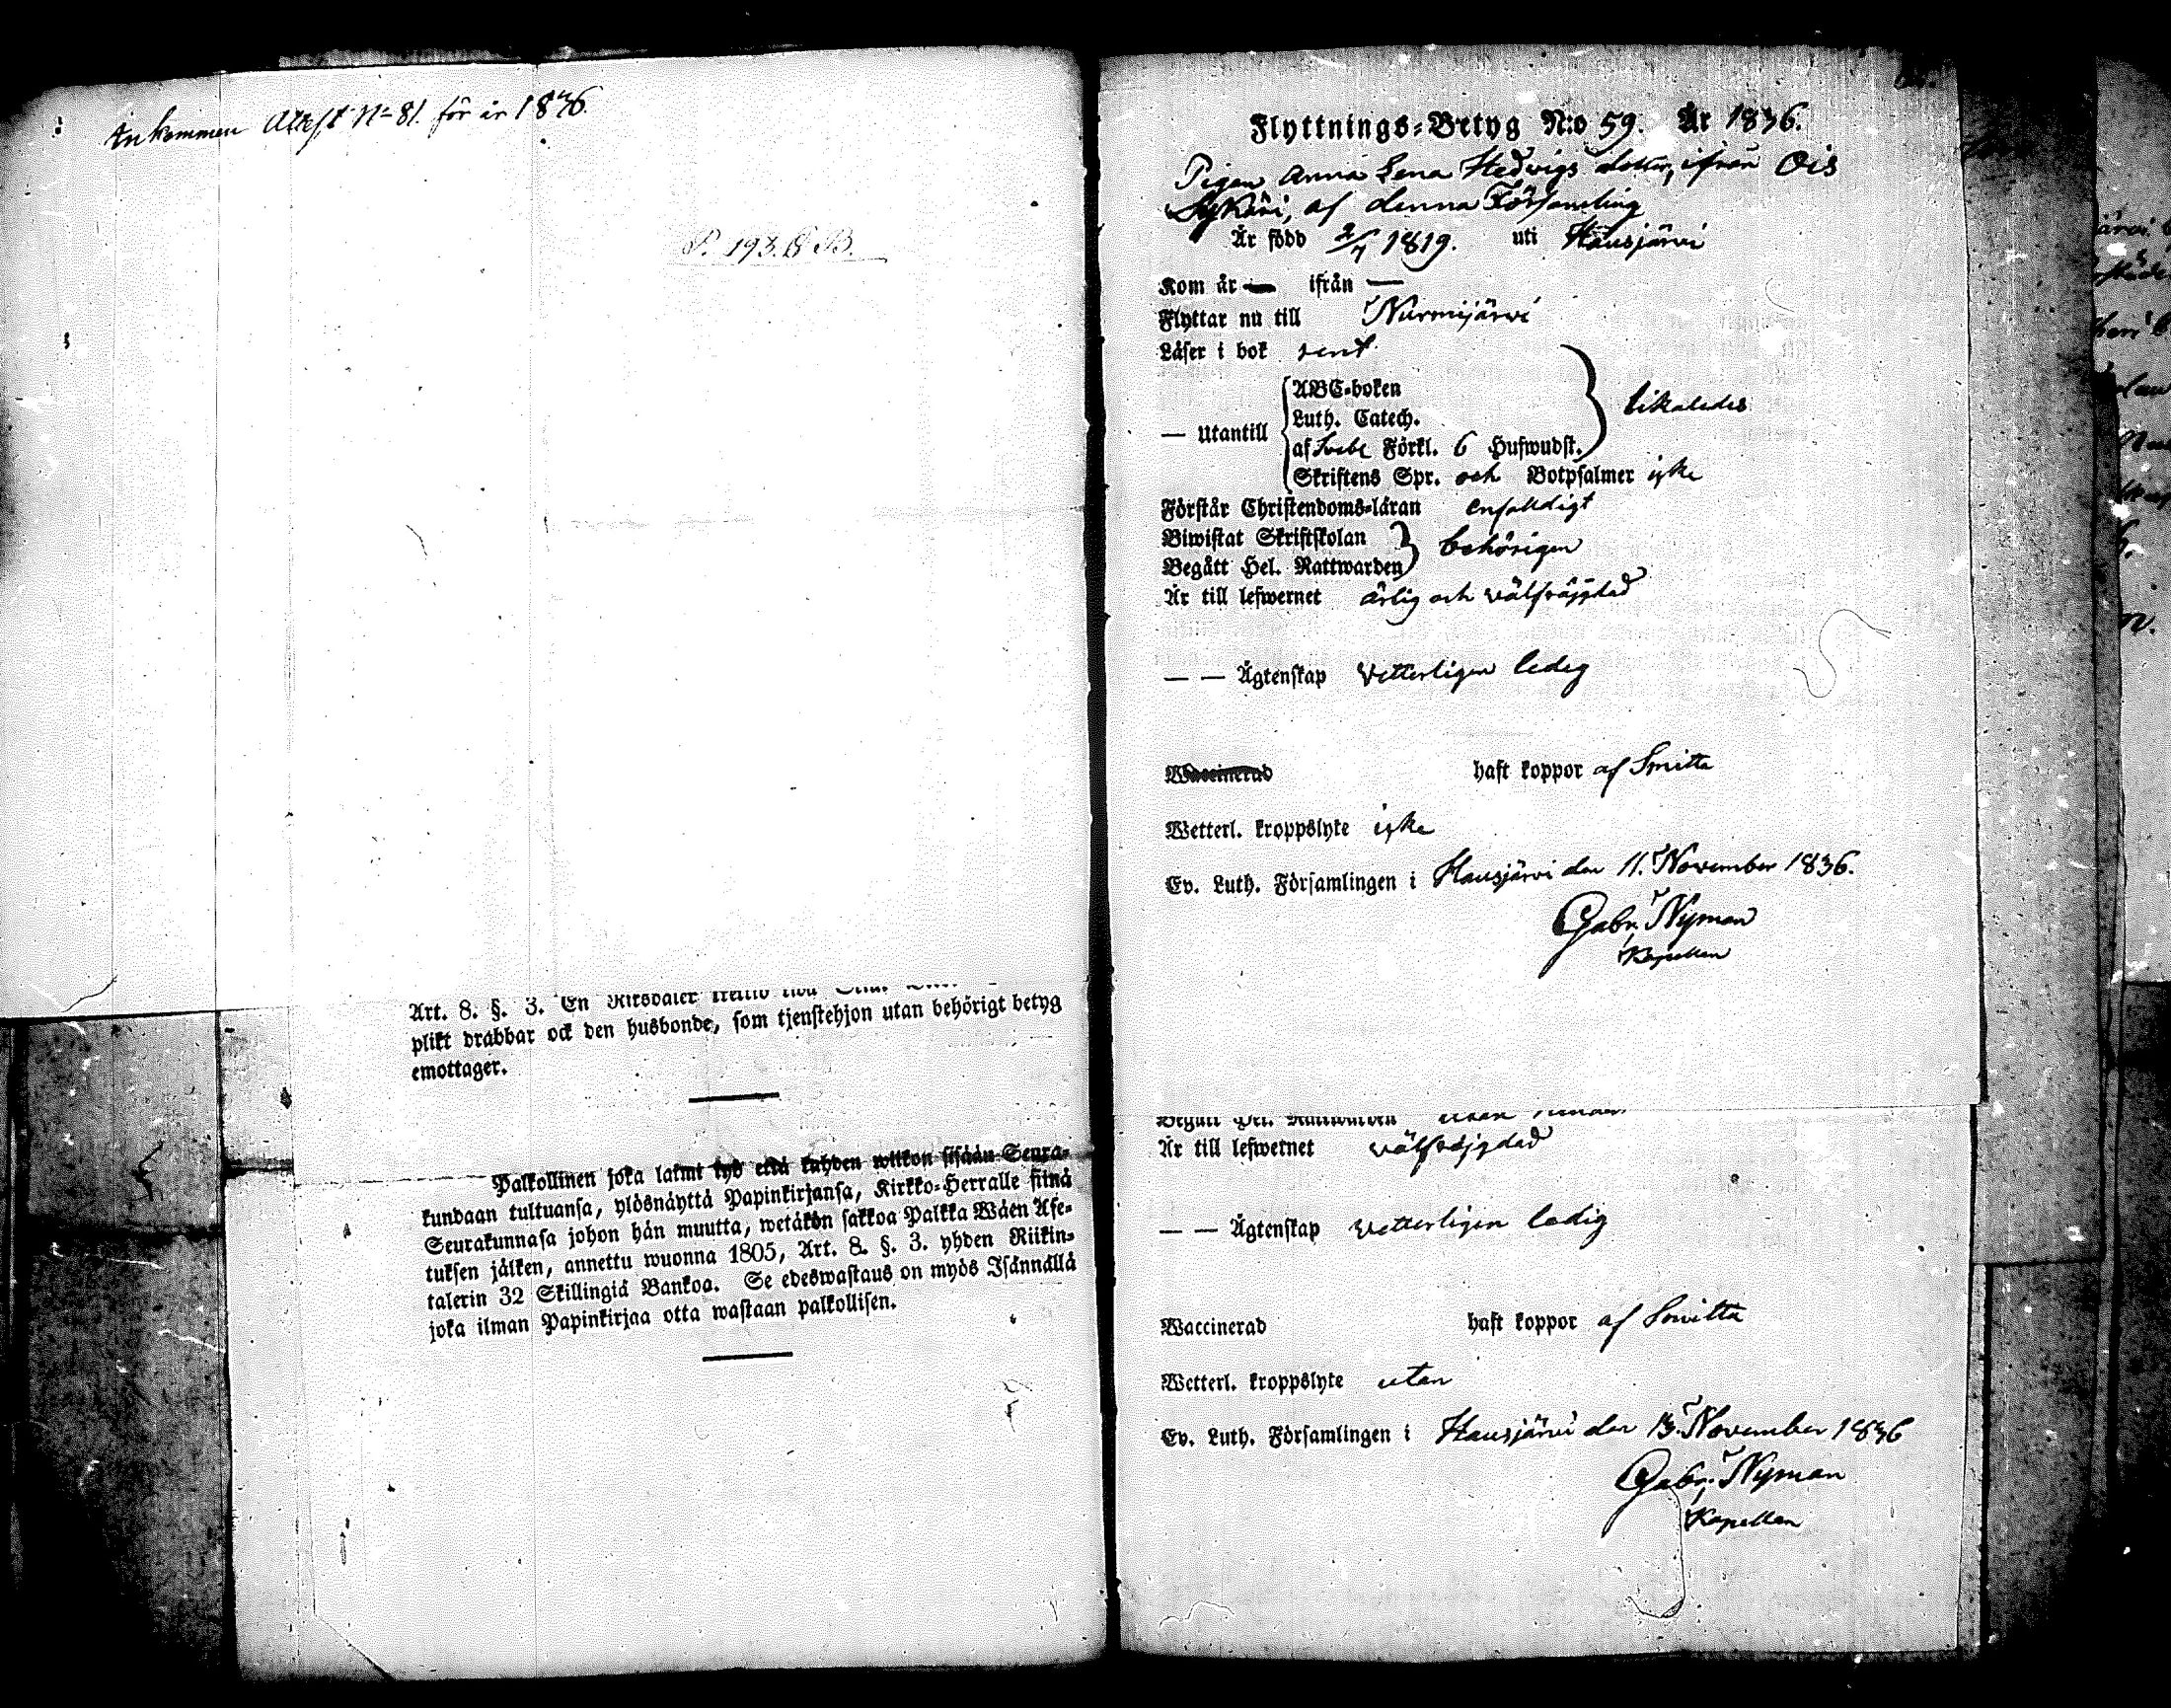 Ankommen Attest N=81. för år 1836.
P. 193. B.
Art. 8. §. 3. En
plikt drabbar ock den husbonde, som tjenstehjon utan behörigt betyg
emottager.
Palkollinen joka laimi lyö että kahden wiikon sisään Seura-
kundaan tultuansa, ylösnäyttä Papinkirjansa, Kirkko-Herralle siinä
Seurakunnasa johon hän muutta, wetäkön sakkoa Palkka Wäen Ase-
tuksen jälken, annettu wuonna 1805, Art. 8. §. 3. yhden Riikin-
talerin 32 Skillingiä Bankoa. Se edeswastaus on myös Isännällä
joka ilman Papinkirjaa otta wastaan palkollisen.
Flyttnings-Betyg N:o 59. År 1836.
Pigan Anna Lena Hedvigs dotter, ifrån Ois
Sykäri, af denna Församling
Är född 2/7 1819. uti Hausjärvi
Kom år — ifrån —
Flyttar nu till Nurmijärvi
Läser i bok rent
— Utantill
ABC-boken
Luth. Catech.
af Svebe Förkl. 6 Hufwudst.
likaledes
Skriftens Spr. och Botpsalmer icke
Förstår Christendoms-läran enfaldigt
Biwistat Skriftskolan
Begått Hel. Nattwarden
behörigen
Är till lefwernet ärlig och välfräjdad
— — Ägtenskap vetterligen ledig
Waccinerad haft koppor af Smitta
Wetterl. kroppslyte icke
Ev. Luth. Församlingen i Hausjärvi den 11. November 1836.
Gabr. Nyman
Kapellan
Begått Hel. Nattwarden
Är till lefwernet välfräjgdad
— — Ägtenskap vetterligen ledig
Waccinerad haft koppor af Smitta
Wetterl. kroppslyte utan
Ev. Luth. Församlingen i Hausjärvi den 13. November 1836
Gabr. Nyman
Kapellan